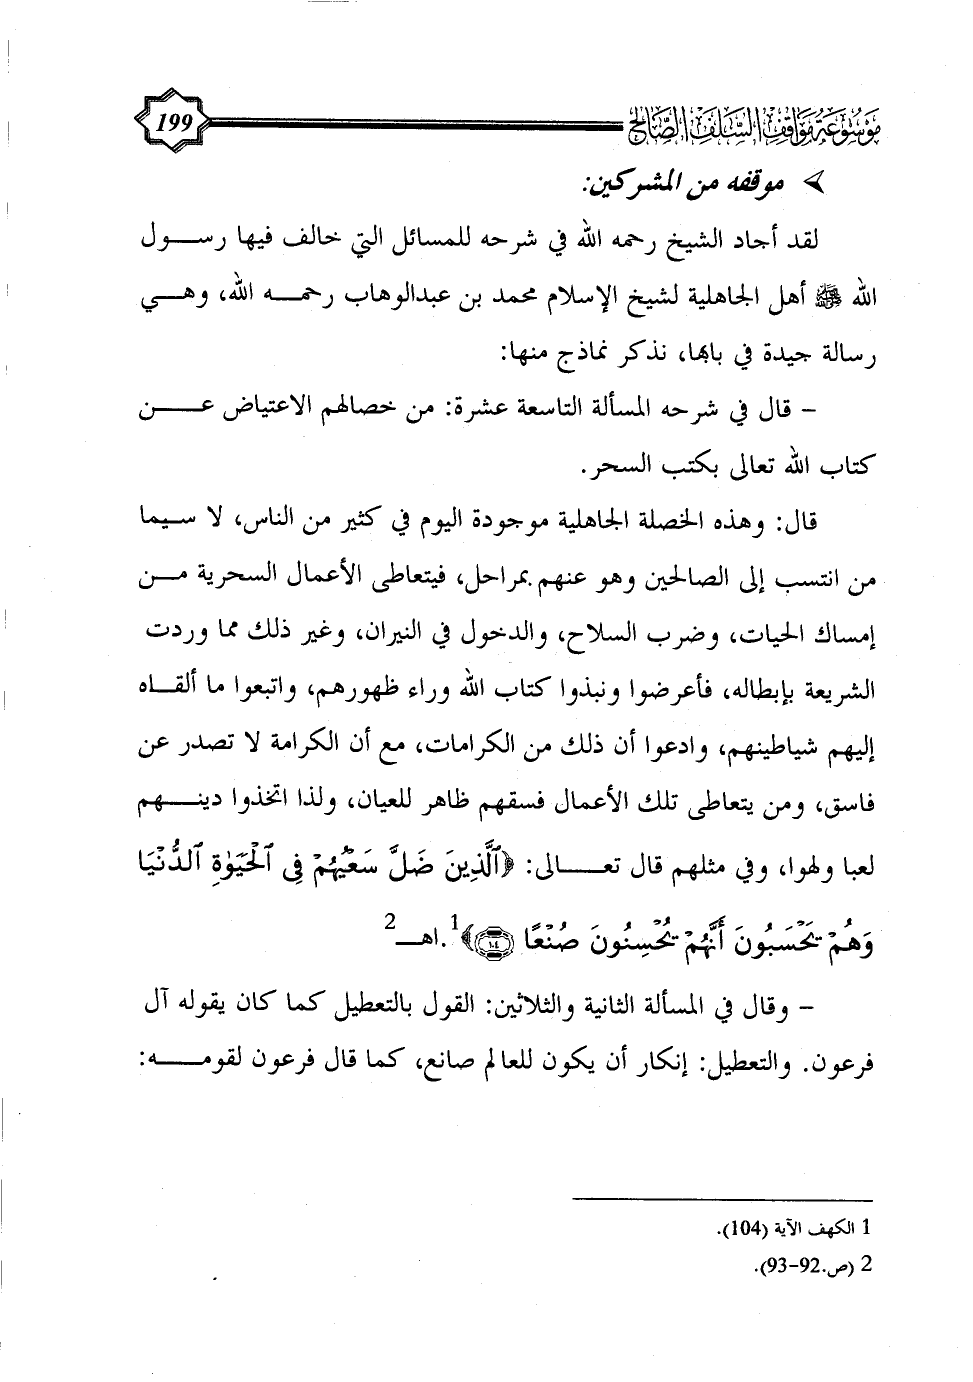 موسوعة مواقف السلف الصالح
199
موقفه من المشركين:
لقد أجاد الشيخ رحمه الله في شرحه للمسائل التي خالف فيها رسول
الله ﷺ أهل الجاهلية لشيخ الإسلام محمد بن عبدالوهاب رحمه الله، وهي
رسالة جيدة في بابها، نذكر نماذج منها:
– قال في شرحه المسألة التاسعة عشرة: من خصالهم الاعتياض عن
كتاب الله تعالى بكتب السحر.
قال: وهذه الخصلة الجاهلية موجودة اليوم في كثير من الناس، لا سيما
من انتسب إلى الصالحين وهو عنهم بمراحل، فيتعاطى الأعمال السحرية من
إمساك الحيات، وضرب السلاح، والدخول في النيران، وغير ذلك مما وردت
الشريعة بإبطاله، فأعرضوا ونبذوا كتاب الله وراء ظهورهم، واتبعوا ما ألقاه
إليهم شياطينهم، وادعوا أن ذلك من الكرامات، مع أن الكرامة لا تصدر عن
فاسق، ومن يتعاطى تلك الأعمال فسقهم ظاهر للعيان، ولذا اتخذوا دينهم
لعبا ولهوا، وفي مثلهم قال تعالى: ﴿ٱلَّذِينَ ضَلَّ سَعْيُهُمْ فِى ٱلْحَيَوٰةِ ٱلدُّنْيَا
وَهُمْ يَحْسَبُونَ أَنَّهُمْ يُحْسِنُونَ صُنْعًا ١٠٤﴾1.اهـ2
– وقال في المسألة الثانية والثلاثين: القول بالتعطيل كما كان يقوله آل
فرعون. والتعطيل: إنكار أن يكون للعالم صانع، كما قال فرعون لقومه:
1 الكهف الآية (104).
2 (ص.92-93).